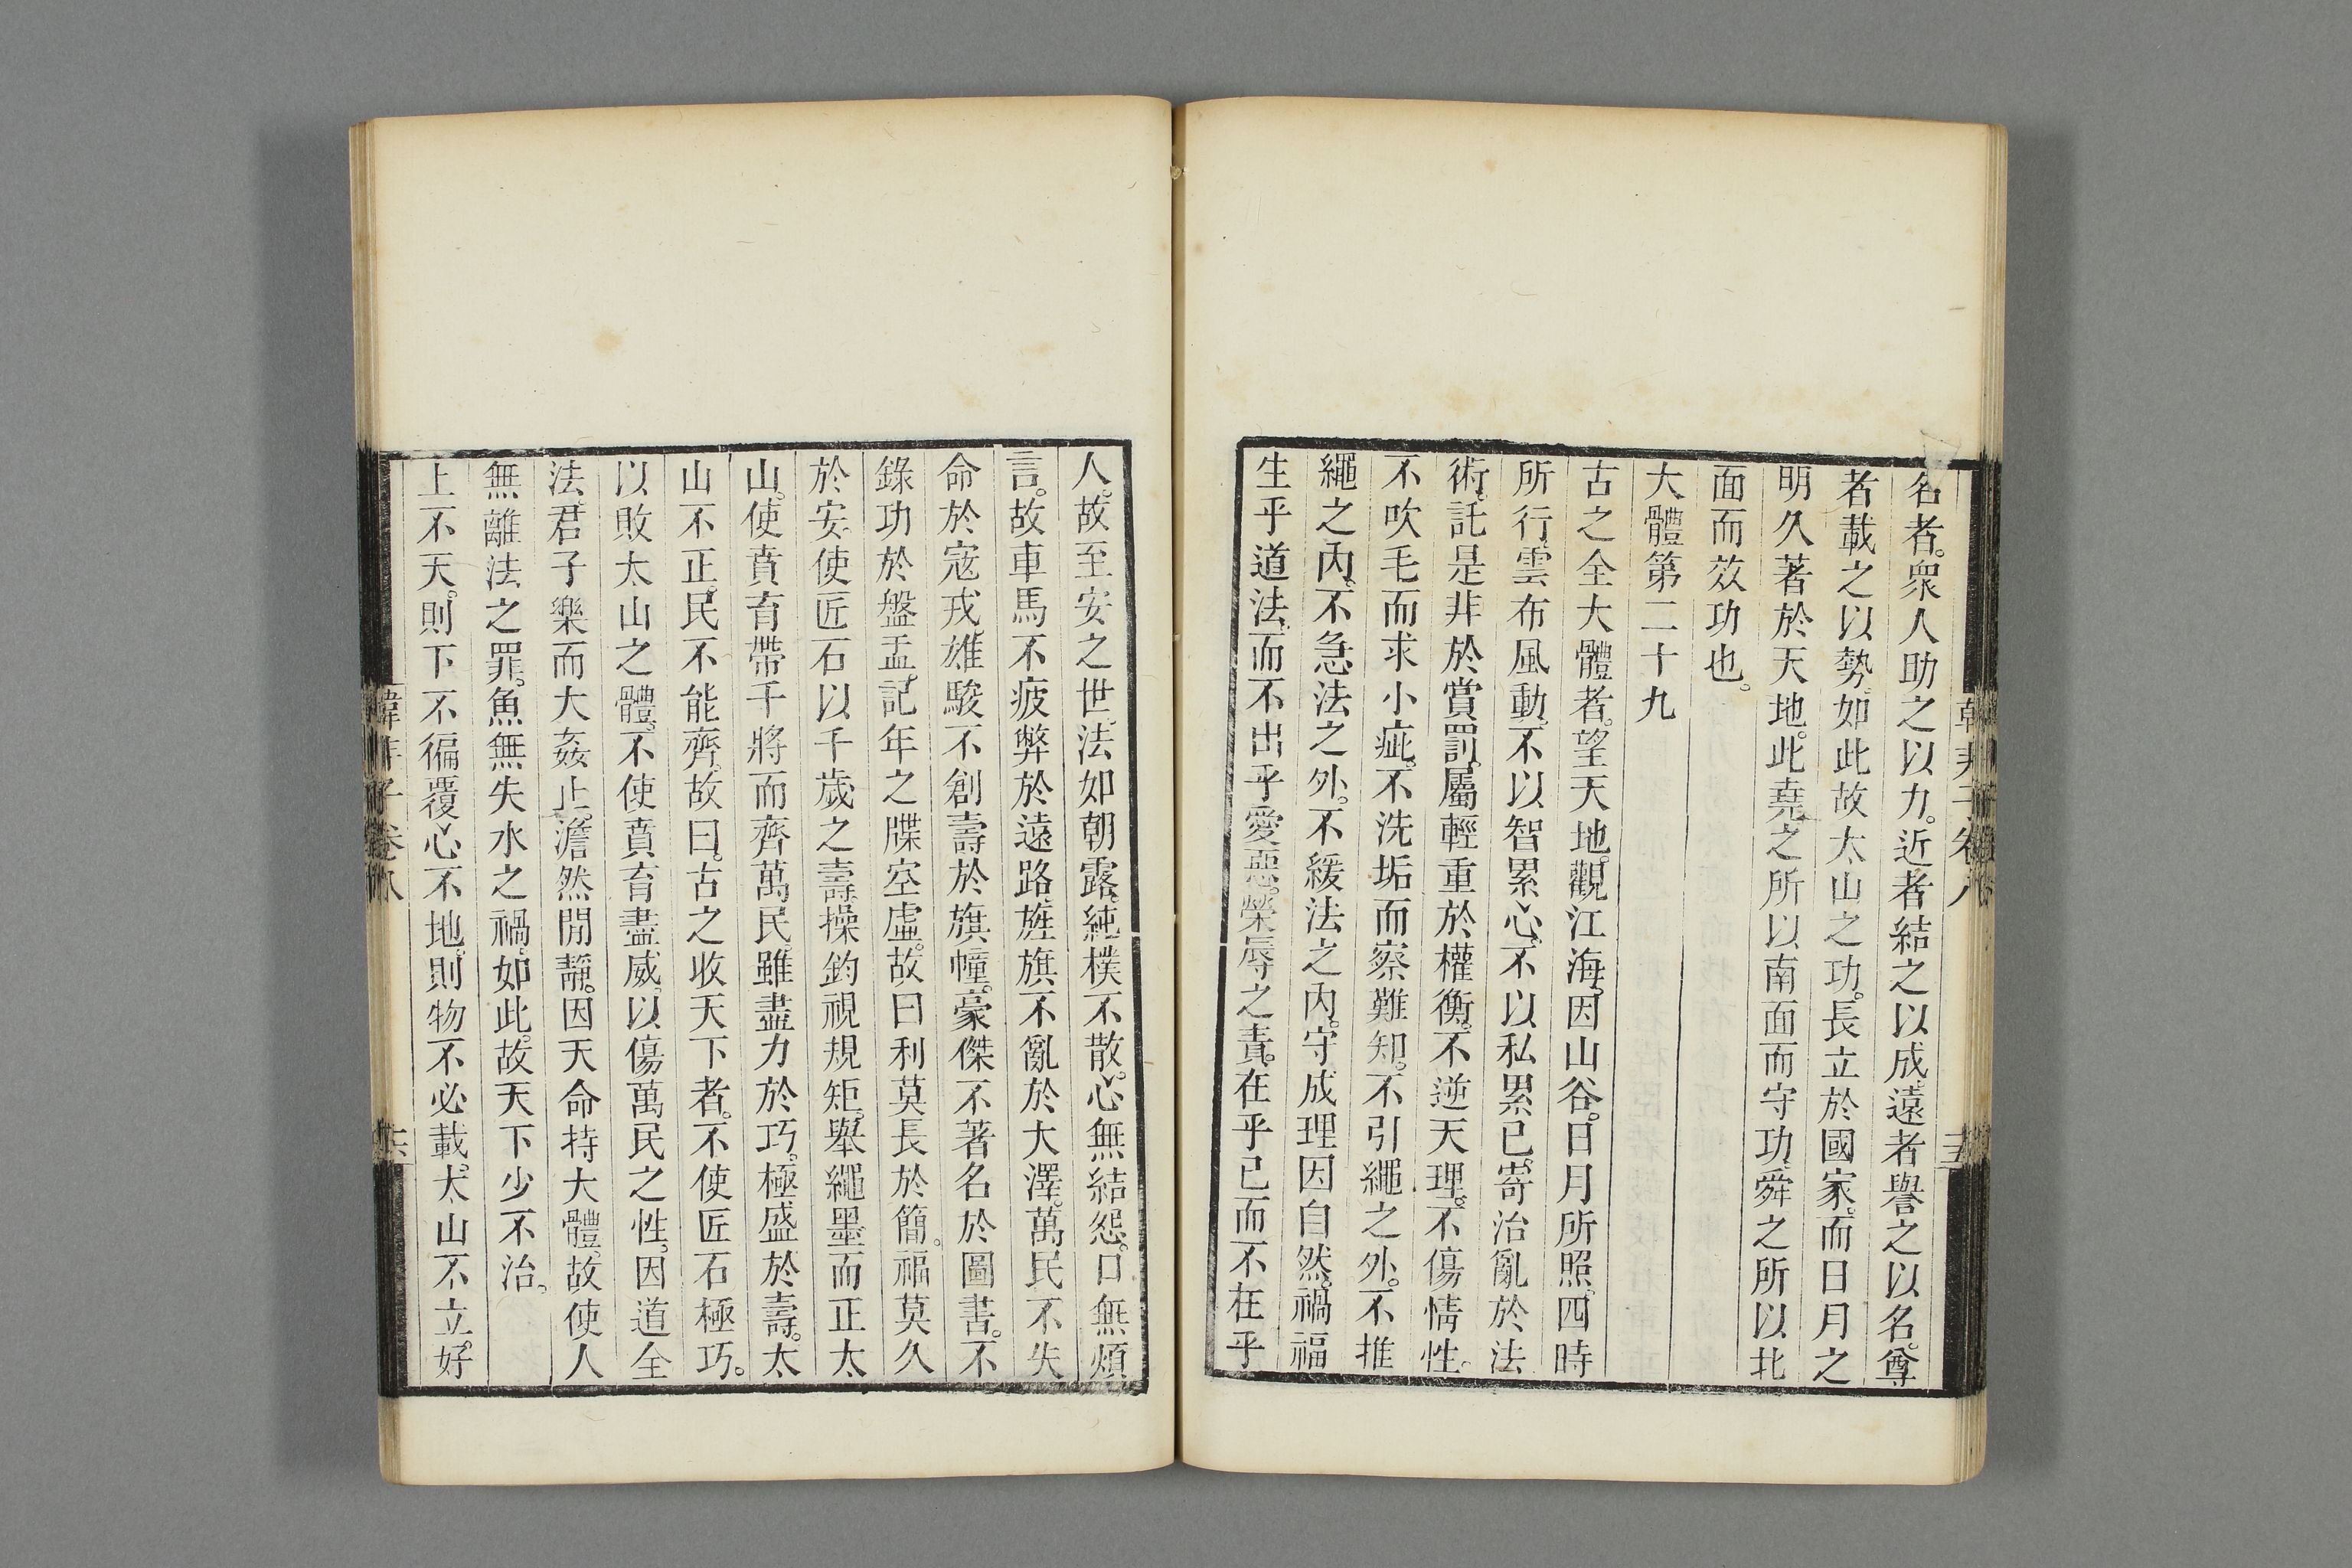 名者。衆人助之以力。近者結之以成。遠者譽之以名。尊
者載之以勢。如此故太山之功。長立於國家。而日月之
明久著於天地。此堯之所以南面而守功。舜之所以北
面而效功也。
大體第二十九
古之全大體者。望天地。觀江海。因山谷。日月所照。四時
所行。雲布風動。不以智累心。不以私累已。寄治亂於法
術。託是非於賞罰。屬輕重於權衡。不逆天理。不傷情性。
不吹毛而求小疵。不洗垢而察難知。不引繩之外。不推
繩之內。不急法之外。不緩法之內。守成理因自然。禍福
生乎道法。而不出乎愛惡。榮辱之責。在乎已而不在乎
人。故至安之世。法如朝露。純樸不散。心無結怨。口無煩
言。故車馬不疲弊於遠路。旌旗不亂於大澤。萬民不失
命於寇戎。雄駿不創壽於旗幢。豪傑不著名於圖書。不
錄功於盤盂。記年之牒空虛。故曰利莫長於簡。福莫久
於安。使匠石以千歲之壽操鈎視規矩。舉繩墨而正太
山。使賁育帶干將而齊萬民。雖盡力於巧。極盛於壽。太
山不正。民不能齊。故曰。古之收天下者。不使匠石極巧。
以敗太山之體。不使賁育盡威。以傷萬民之性。因道全
法。君子樂而大姦止。澹然閒靜。因天命持大體。故使人
無離法之罪。魚無失水之禍。如此。故天下少不治。
上不天。則下不徧覆心不地。則物不必載。太山不立。好
韓非子卷八